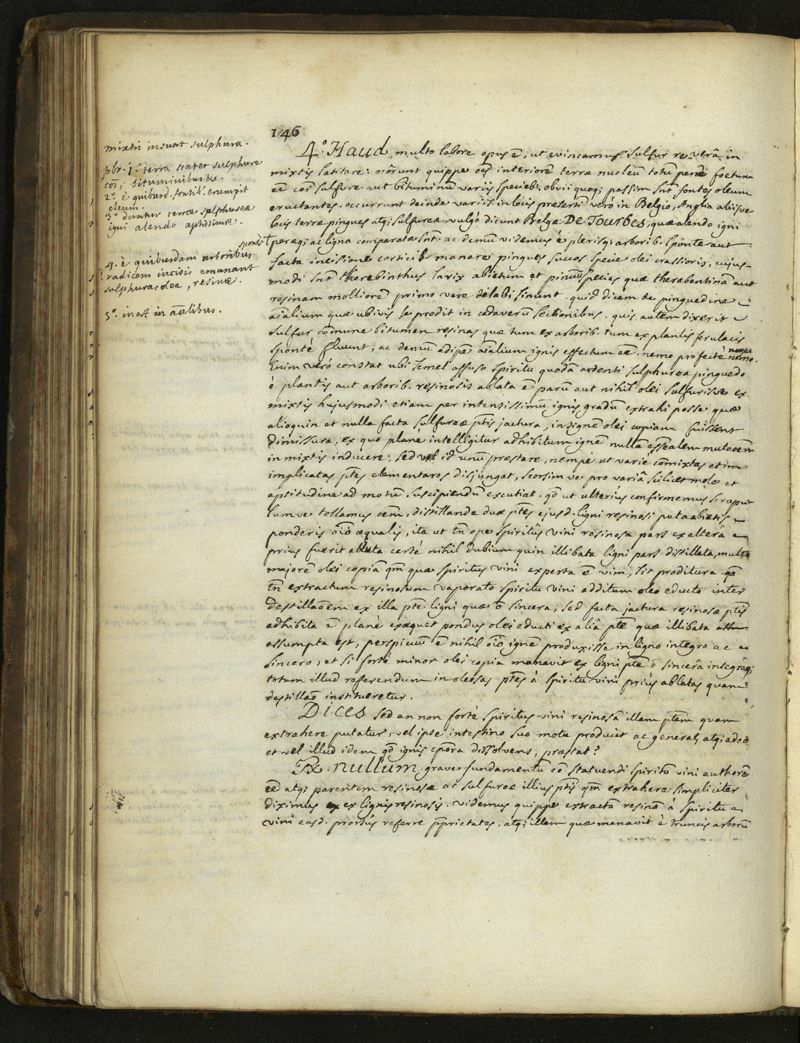 146
mixtis insunt sulphura.
pbr. 1º terra scatet sulphure
bituminibusve
2º è quibusd. fontib. erumpit
oleum.
3º dantur terræ sulphureæ
igni alendo aptissimæ.
4º è quibusdam arboribus
radicam incisis emanant
sulphurea olea, resinæ.
5º inest in aãlibus.
4º Haud multo labore opus ē, ut evincamus sulfur revera in
mixtis latitare: nõrunt quippe oẽs interiorẽ terræ nucleũ totũ penè foetum
eē sulfure aut bituminũ variis speciebus. obvii quoq; passim snt fontes oleum
eructantes. occurrunt deinde variis in locis præsertĩ verò in Belgio, Anglia aliisve
locis terræ pingues atq; sulfureæ vulgo dicunt Belgæ De Tourbes, quæ alendo igni
peræq; ac ligna comparatæ snt. ac demũ videmus è plerisq; arborib. sponte aut
facta incisione corticib. manare pingues succos specie olei crassioris, cujus-
modi snt therebinthus larix abietum et pinus species quæ therebentinã aut
resinam molliorẽ primo vere delabi sinunt. quid dicam de pinguedine
aĩalium quæ ubivis se prodit in cadaverũ sectionibus. quis autem dixerit
sulfur cõmune bitumen resinas quæ tum ex arborib. tum ex plantis ferulaceis
sponte fluunt, ac demũ adipẽ aĩalium ignis effectum eē. nemo profectò
Enim verò constat ubi semel affuso spiritu quodã ardenti sulphurea pinguedo
è plantis aut arborib. resinosis ablata ē parũ aut nihil olei sulfurisve ex
mixtis hujusmodi etiam per intensissimũ ignis gradũ extrahi posse quæ
alioquin et nulla facta sulfureæ ptis jactura, insignẽ olei copiam fuissent
dimissura, ex quo planè intelligitur adhibitum ignẽ nullã essẽalem mutaõem
in mixtis inducere: sed vel id unũ præstare, nempè ut variè cõmixtas et im
implicatas ptes elementares disjungat, seorsim ve pro variâ scilicet mole et
aptitudine ad motũ suscipiendũ excutiat. qd ut ulteriùs confirmemus scrupu
lumve tollamus oem, distillandæ duæ ptes ejusd. ligni resinosi puta abietis
ponderis oĩõ æqualis, ita ut tñ ope spiritûs vini resinosa pars ex alterâ
priùs fuerit ablata certè nihil dubium quin illibata ligni pars distillata, multo
majorẽ olei copiã qm quæ spiritus vini experta ē vim, sit proditura. qd
tñ extractum resinosum vaporato spiritu vini additum oleo educto inter
destillaõem ex illa pte ligni quæ ñ sincera, sed facta jactura resinosæ ptis
adhibita ē planè exæquet pondus olei educti ex aliâ pte quæ illibata
assumpta est, perspicuũ ē nihil oĩõ ignẽ produxisse in ligno integro ac
sincero, et si fortè minor olei copia manavit ex ligni pte ñ sincerâ integrâq;
totum illud referendum in oleosas ptes à spiritu vini priùs ablatas quam
destillaõ institueretur.
Dices sed an non fortè spiritus vini resinosã illam ptem quam
extrahere putatur, vel ipse intestino suo motu producit ac generat, atq; adeo
et vel illud idem qd ignis opera dissolvens, præstat?
Rx. nullum grave fundamentũ eē statuendi spiritũ vini authorẽ
eē atq; parentem resinosæ ac sulfureæ illius ptis qm extrahere simpliciter
diximus ex lignis resinosis. videmus quippe extractã resinã à spiritu
vini easd. prorsùs referre pprietates, atq; illam quæ manavit è truncis arborũ